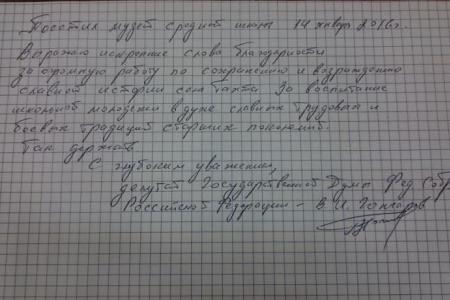 Посетил музей средней школы 14 января 2016г.
Выражаю искренние слова благодарности
за огромную работу по сохранению и возрождению
славной истории села За воспитание
школьной молодежи в духе славных трудовых и
боевых традиций старших поколений.
Так держать.
С глубоким уважением,
депутат Государственной Думы Фед Собр
Российской Федерации - В И Гончаров